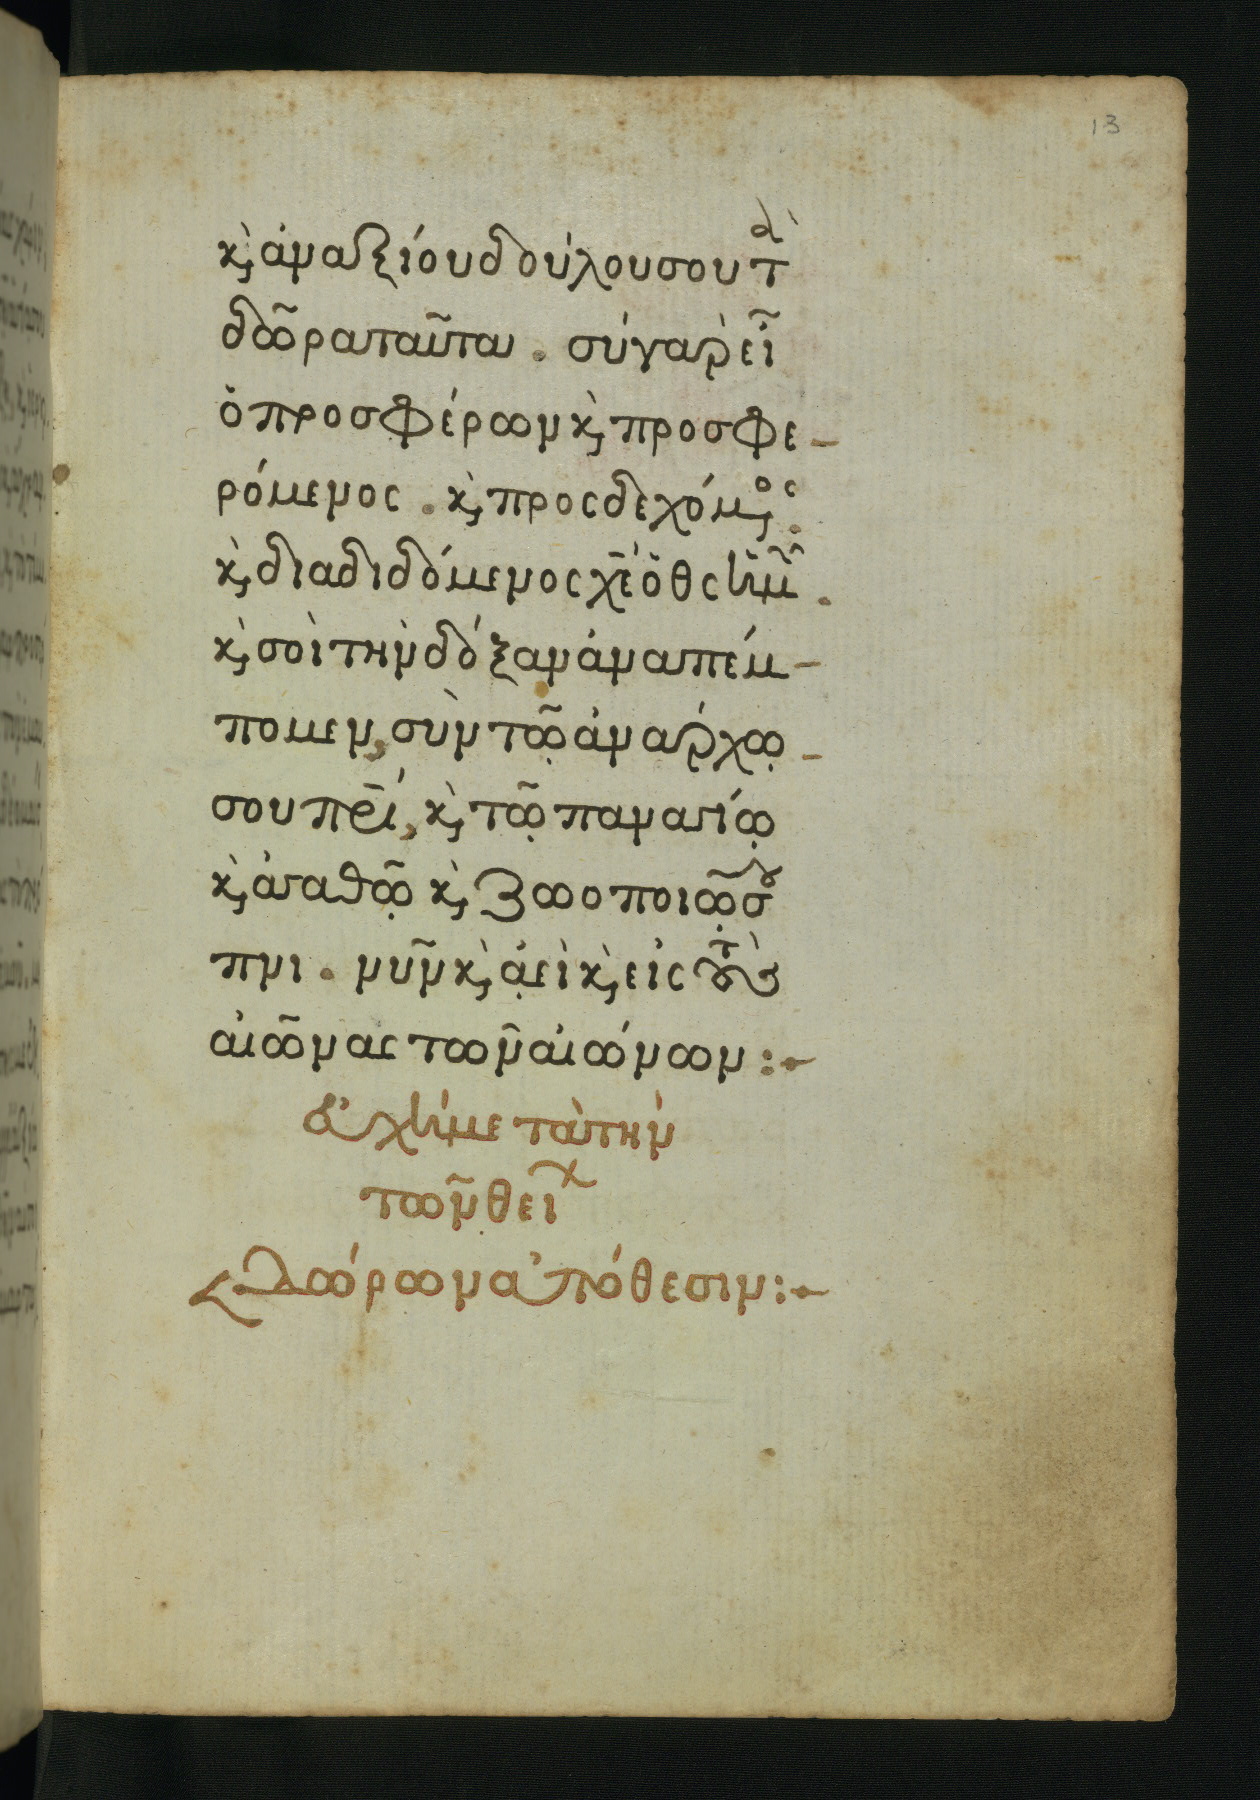 13
κ, ἀναξίου δούλου σου τὰ
δῶρα ταῦτα. σὺ γὰρ εἶ
ὁ προσφέρων κ, προσφε-
ρόμενος. κ, προσδεχόμ,ος.
κ, διαδιδόμενος χ̅ε̅ ὁ θ̅ς̅ ἡμῶν.
κ, σοὶ τὴν δόξαν ἀναπέμ-
πομεν, σὺν τῷ ἀνάρχῳ-
σου π̅ρ̅ι̅, κ, τῷ παναγίῳ
κ, ἀγαθῷ κ, ζωοποιῷ σου
πνι. νῦν κ, ἀεὶ κ, εἰς τοὺς
αἰῶνας τῶν αἰώνων:-
εὐχὴ μετὰ τὴν
τῶν θείων
δώρων ἀπόθεσιν:-